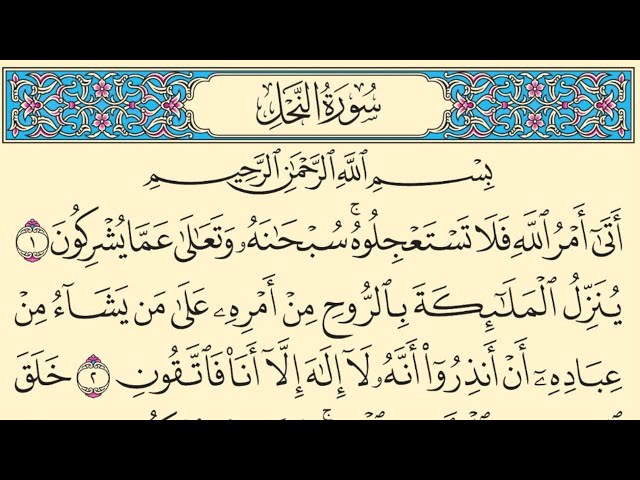 سُورَةُ النَّحْلِ
بِسْمِ ٱللَّهِ ٱلرَّحْمَٰنِ ٱلرَّحِيمِ
أَتَىٰٓ أَمْرُ ٱللَّهِ فَلَا تَسْتَعْجِلُوهُۚ سُبْحَٰنَهُۥ وَتَعَٰلَىٰ عَمَّا يُشْرِكُونَ ١
يُنَزِّلُ ٱلْمَلَٰٓئِكَةَ بِٱلرُّوحِ مِنْ أَمْرِهِۦ عَلَىٰ مَن يَشَآءُ مِنْ
عِبَادِهِۦٓ أَنْ أَنذِرُوٓا۟ أَنَّهُۥ لَآ إِلَٰهَ إِلَّآ أَنَا۠ فَٱتَّقُونِ ٢ خَلَقَ